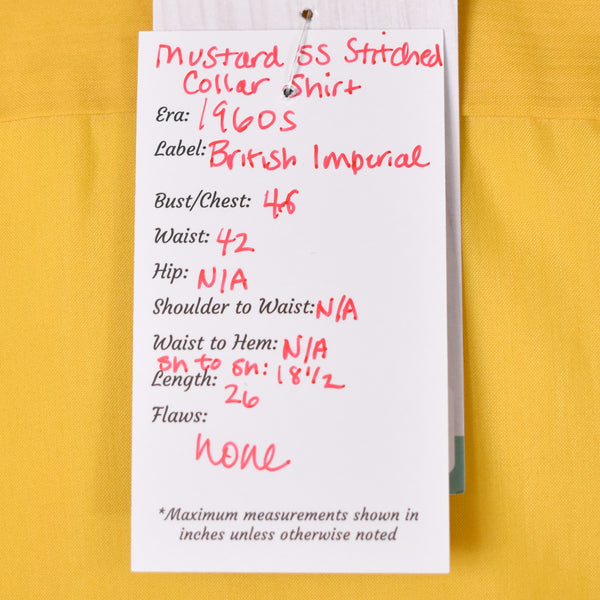 Mustard SS Stitched
Collar Shirt
Era: 1960s
Label: British Imperial
Bust/Chest: 46
Waist: 42
Hip: N/A
Shoulder to Waist: N/A
Waist to Hem: N/A
sh to sh: 18 1/2
Length: 26
Flaws:
none
*Maximum measurements shown in
inches unless otherwise noted